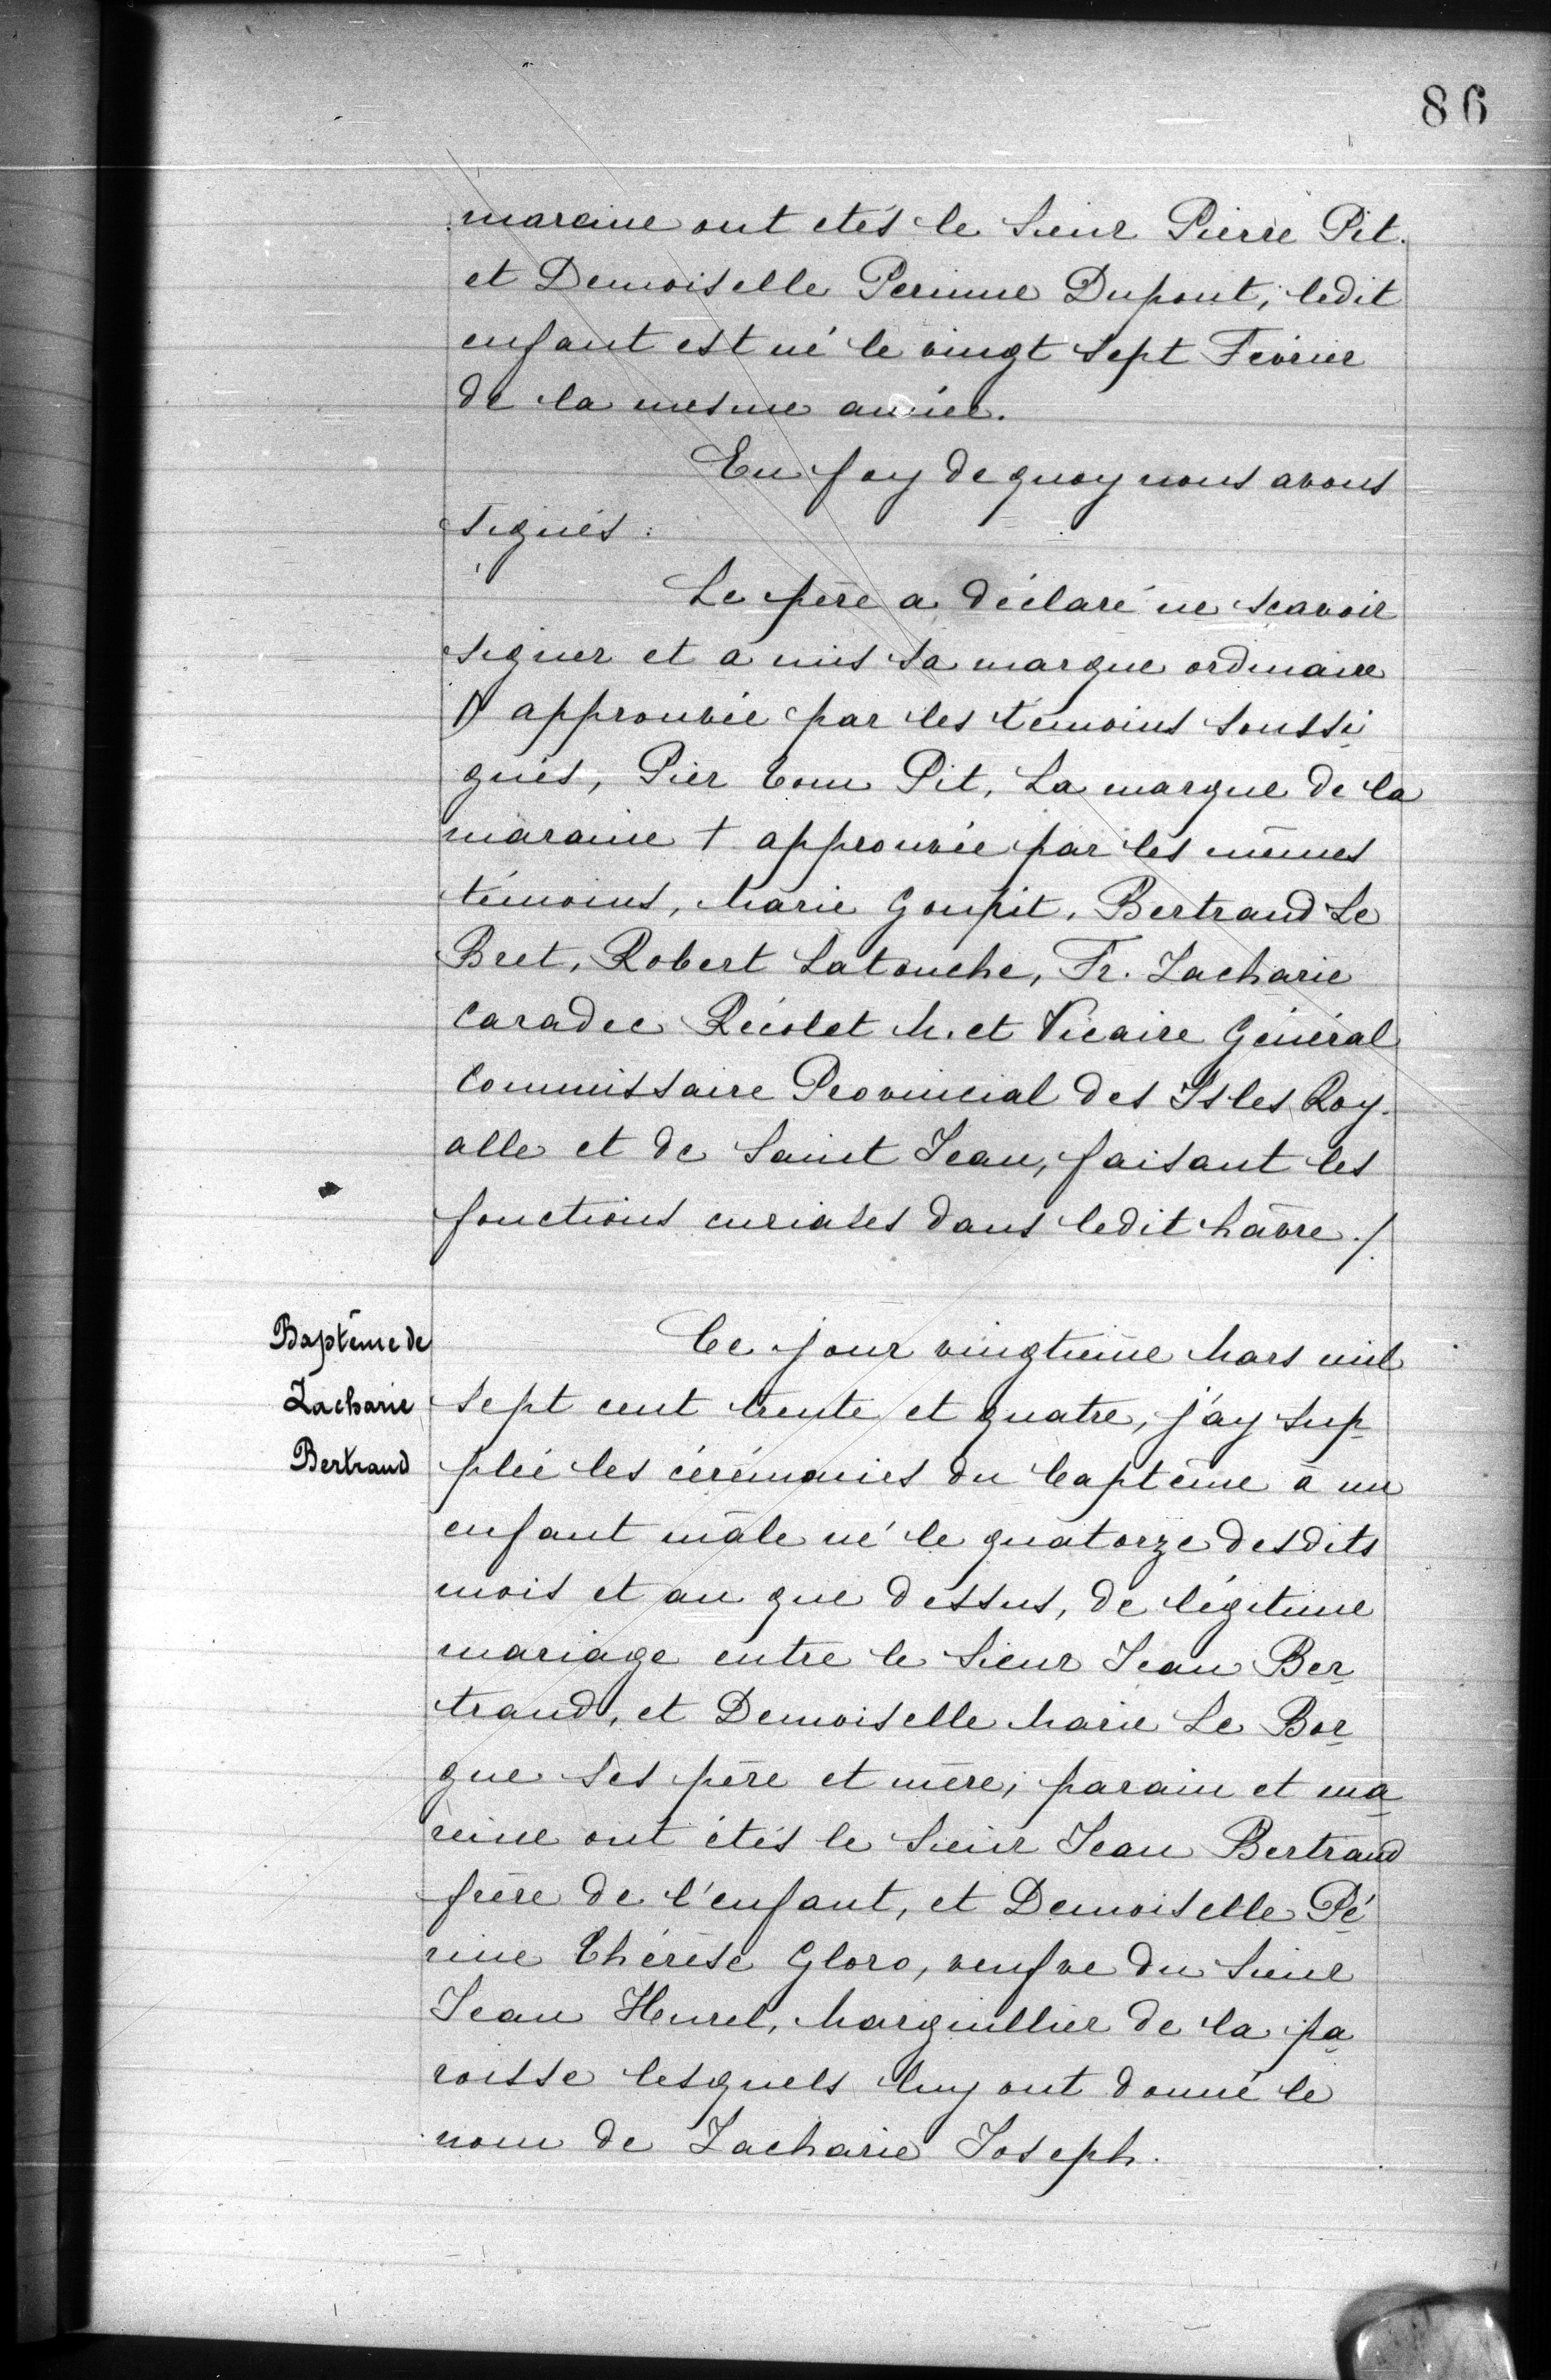 86
maraine ont etés le Sieur Pierre Pit.
et Demoiselle Perinne Dupont; ledit
enfant est né le vingt Sept Février
de la mesme année.
En foy de quoy nous avons
signés:
Le père a déclaré ne scavoir
signer et a mis sa marque ordinaire
approuvée par les témoins soussi
gnés, Pier Tom Pit, La marque de la
maraine + approuvée par les mêmes
témoins, Marie Goupit, Bertrand Le
Bret, Robert Latouche, Fr. Zacharie
Caradec Récolet M. et Vicaire Général
Commissaire Provincial des Isles Roy-
alle et de Saint Jean, faisant les
fonctions curiales dans ledit hâvre ./.
Baptême de
Zacharie
Bertrand
Ce jour vingtième Mars mil
Sept cent trente et quatre, j'ay sup
pléé les cérémonies du baptême à un
enfant mâle né le quatorze desdits
mois et an que dessus, de légitime
mariage entre le Sieur Jean Ber
trand, et Demoiselle Marie Le Bor
gue ses père et mère; parain et ma
reine ont étés le Sieur Jean Bertrand
frère de l'enfant, et Demoiselle Pé
rine Thérèse Gloro, veufve du Sieur
Jean Hurel, Marguillier de la pa
roisse lesquels luy ont donné le
nom de Zacharie Joseph.